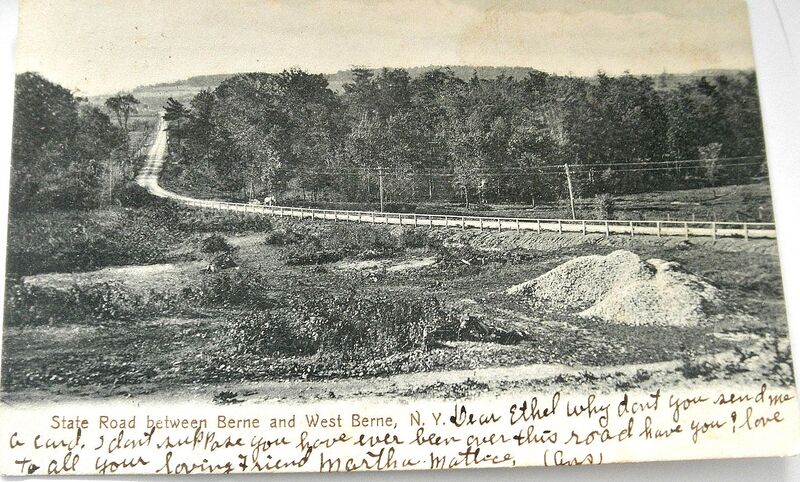 State Road between Berne and West Berne, N. Y. Dear Ethel why dont you send me
a card. I don't suppose you have ever been over this road have you? love
to all your loving Friend Martha Mattice, (Ans)